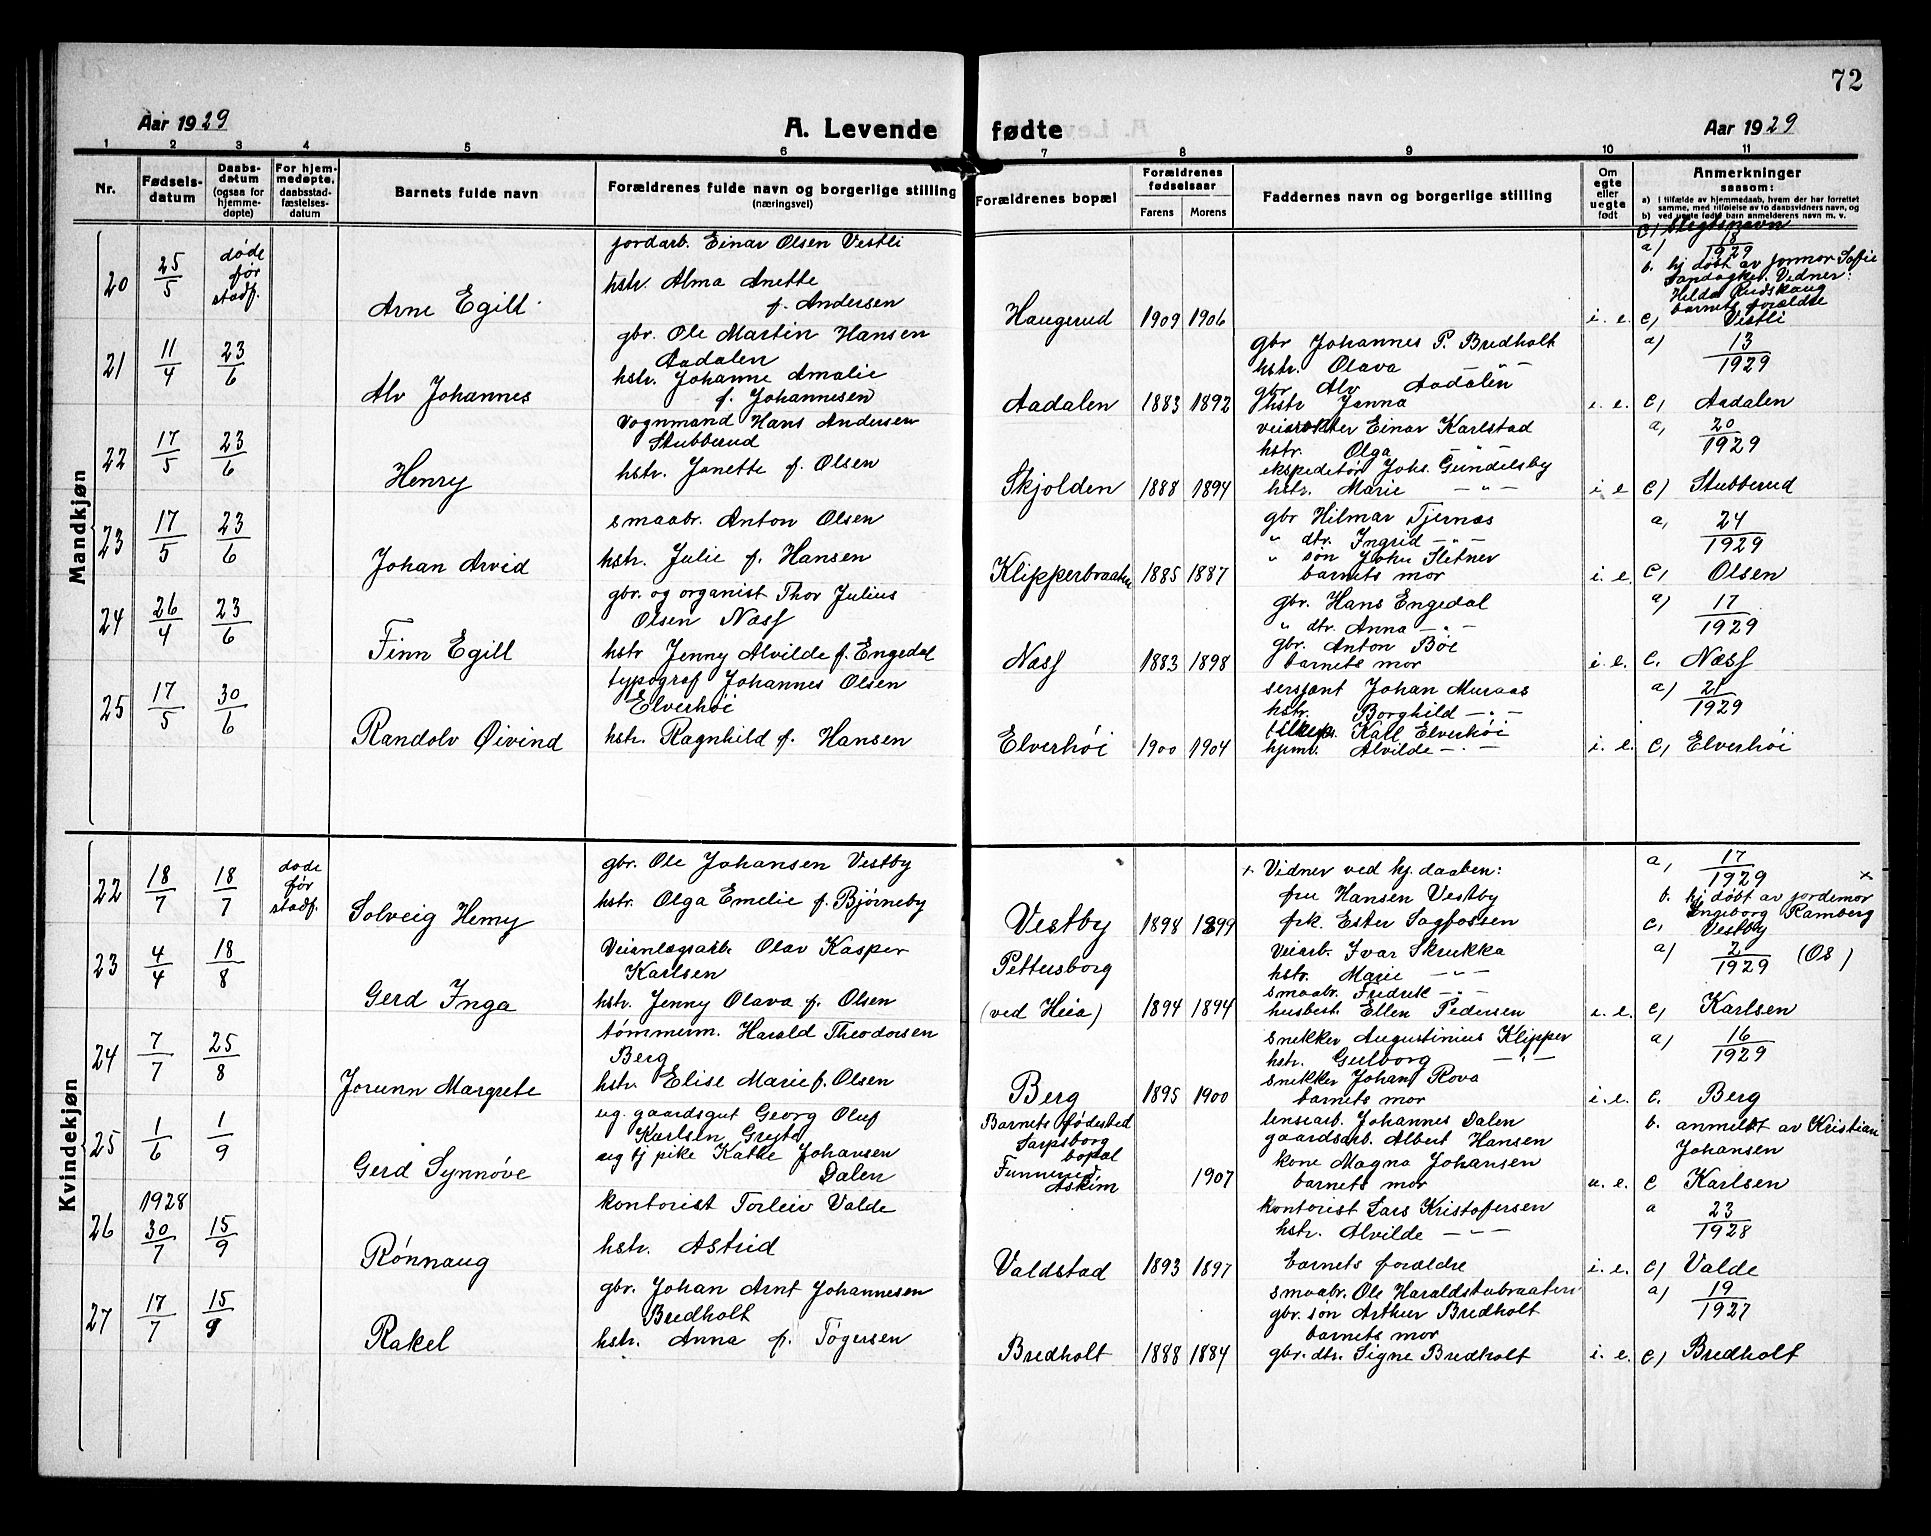 72
Aar 1929
A. Levende fødte
Aar 1929
1 2 3 4 5 6 7 8 9 10 11
Nr.
Fødsels-
datum
Daabs-
datum
(ogsaa for
hjemme-
døpte)
For hjem-
medøpte,
daabsstad-
fæstelses-
datum
Barnets fulde navn
Forældrenes fulde navn og borgerlige stilling
(næringsvei)
Forældrenes bopæl
Forældrenes
fødselsaar
Farens Morens
Faddernes navn og borgerlige stilling
Om
egte
eller
uegte
født
Anmerkninger
saasom:
a) I tilfælde av hjemmedaab, hvem der har forrettet
samme, med tilføielse av to daabsvidners navn, og
b) ved uegte født barn anmelderens navn m. v.
c) slegtsnavn
Mandkjøn
20
25/5
døde
før
stadf.
Arne Egill
jordarb. Einar Olsen Vestli
hstr. Alma Anette
f. Andersen
Haugerud
1909 1906
i. e.
a) 18/1929
b. hj døbt av jormor Sofie
Sandaker. Vidner:
Hilda Rudskaug
barnets forældre
c) Vestli
21
11/4
23/6
Alv Johannes
gbr. Ole Martin Hansen
Aadalen
hstr. Johanne Amalie
f. Johannesen
Aadalen
1883 1892
gbr Johannes P. Bredholt
hstr. Olava — " —
gbr Alv Aadalen
hstr Janna
i. e.
a) 13/1929
c) Aadalen
22
17/5
23/6
Henry
Vognmand Hans Andersen
Stubberud
hstr. Janette f. Olsen
Skjolden
1888 1894
veivokter Einar Karlstad
hstr. Olga — " —
ekspeditør Johs. Gundelsby
hstr. Marie — " —
i. e
a, 20/1929
c) Stubberud
23
17/5
23/6
Johan Arvid
smaabr. Anton Olsen
hstr. Julie f. Hansen
Klipperbraaten
1885 1887
gbr Hilmar Tjernæs
" dtr. Ingrid — " —
" søn John Sletner
barnets mor
i. e.
a, 24/1929
c, Olsen
24
26/4
23/6
Finn Egill
gbr. og organist Thor Julius
Olsen Næss
hstr Jenny Alvilde f. Engedal
Næss
1883 1898
gbr. Hans Engedal
" dtr. Anna — " —
gbr. Anton Bøe
barnets mor
i. e.
a) 17/1929
c. Næss
25
17/5
30/6
Randolv Øivind
typograf Johannes Olsen
Elverhøi
hstr. Ragnhild f. Hansen
Elverhøi
1900 1904
sersjant Johan Muraas
hstr. Borghild — " —
Karl Elverhøi
hjmv. Alvilde — " —
i. e.
a) 21/1929
c, Elverhøi
Kvindekjøn
22
18/7
18/7
døde
før
stadf.
Solveig Henny
gbr. Ole Johansen Vestby
hstr. Olga Emelie f. Bjørneby
Vestby
1898 1899
x Vidner ved hj. daaben:
fru Hansen Vestby
frk. Ester Sagfossen
a, 17/1929 x
b. hj døbt av jordemor
Ingeborg Ramberg
c, Vestby
23
4/4
18/8
Gerd Inga
Veianlægsarb. Olav Kasper
Karlsen
hstr. Jenny Olava f. Olsen
Pettersborg
(ved Heia)
1894 1894
veiarb. Ivar Skrukka
hstr. Marie — " —
smaabr. Fredrik — " —
husbest. Ellen Pedersen
i. e.
a) 2/1929 (Os)
c, Karlsen
24
7/7
25/8
Jorunn Margrete
tømmerm. Harald Theodorsen
Berg
hstr. Elise Marie f. Olsen
Berg
1895 1900
snekker Augustinius Klipper
hstr. Gulborg — " —
snekker Johan Rova
barnets mor
i. e.
a) 16/1929
c. Berg
25
1/6
1/9
Gerd Synnøve
ug. gaardsgut Georg Oluf
Karlsen
ug tj pike Kathe Johansen
Dalen
Barnets fødested
Sarpsborg
bopæl
Askim
1907
lensearb. Johannes Dalen
gaardsarb. Albert Hansen
kone Magna Johansen
barnets mor
u. e.
b. anmeldt av Kristian
Johansen
c Karlsen
26
1928
30/7
15/9
Rønnaug
kontorist Torleiv Valde
hstr. Astrid
Valdstad
1893 1897
kontorist Lars Kristofersen
hstr. Alvilde — " —
barnets forældre
i. e.
a 23/1928
c) Valde
27
17/7
15/9
Rakel
gbr. Johan Arnt Johannesen
Bredholt
hstr. Anna f. Tøgersen
Bredholt
1888 1884
smaabr. Ole Haraldstubraaten
gbr. søn Arthur Bredholt
barnets mor
gbr. dtr. Signe Bredholt
i. e.
a) 19/1927
c) Bredholt